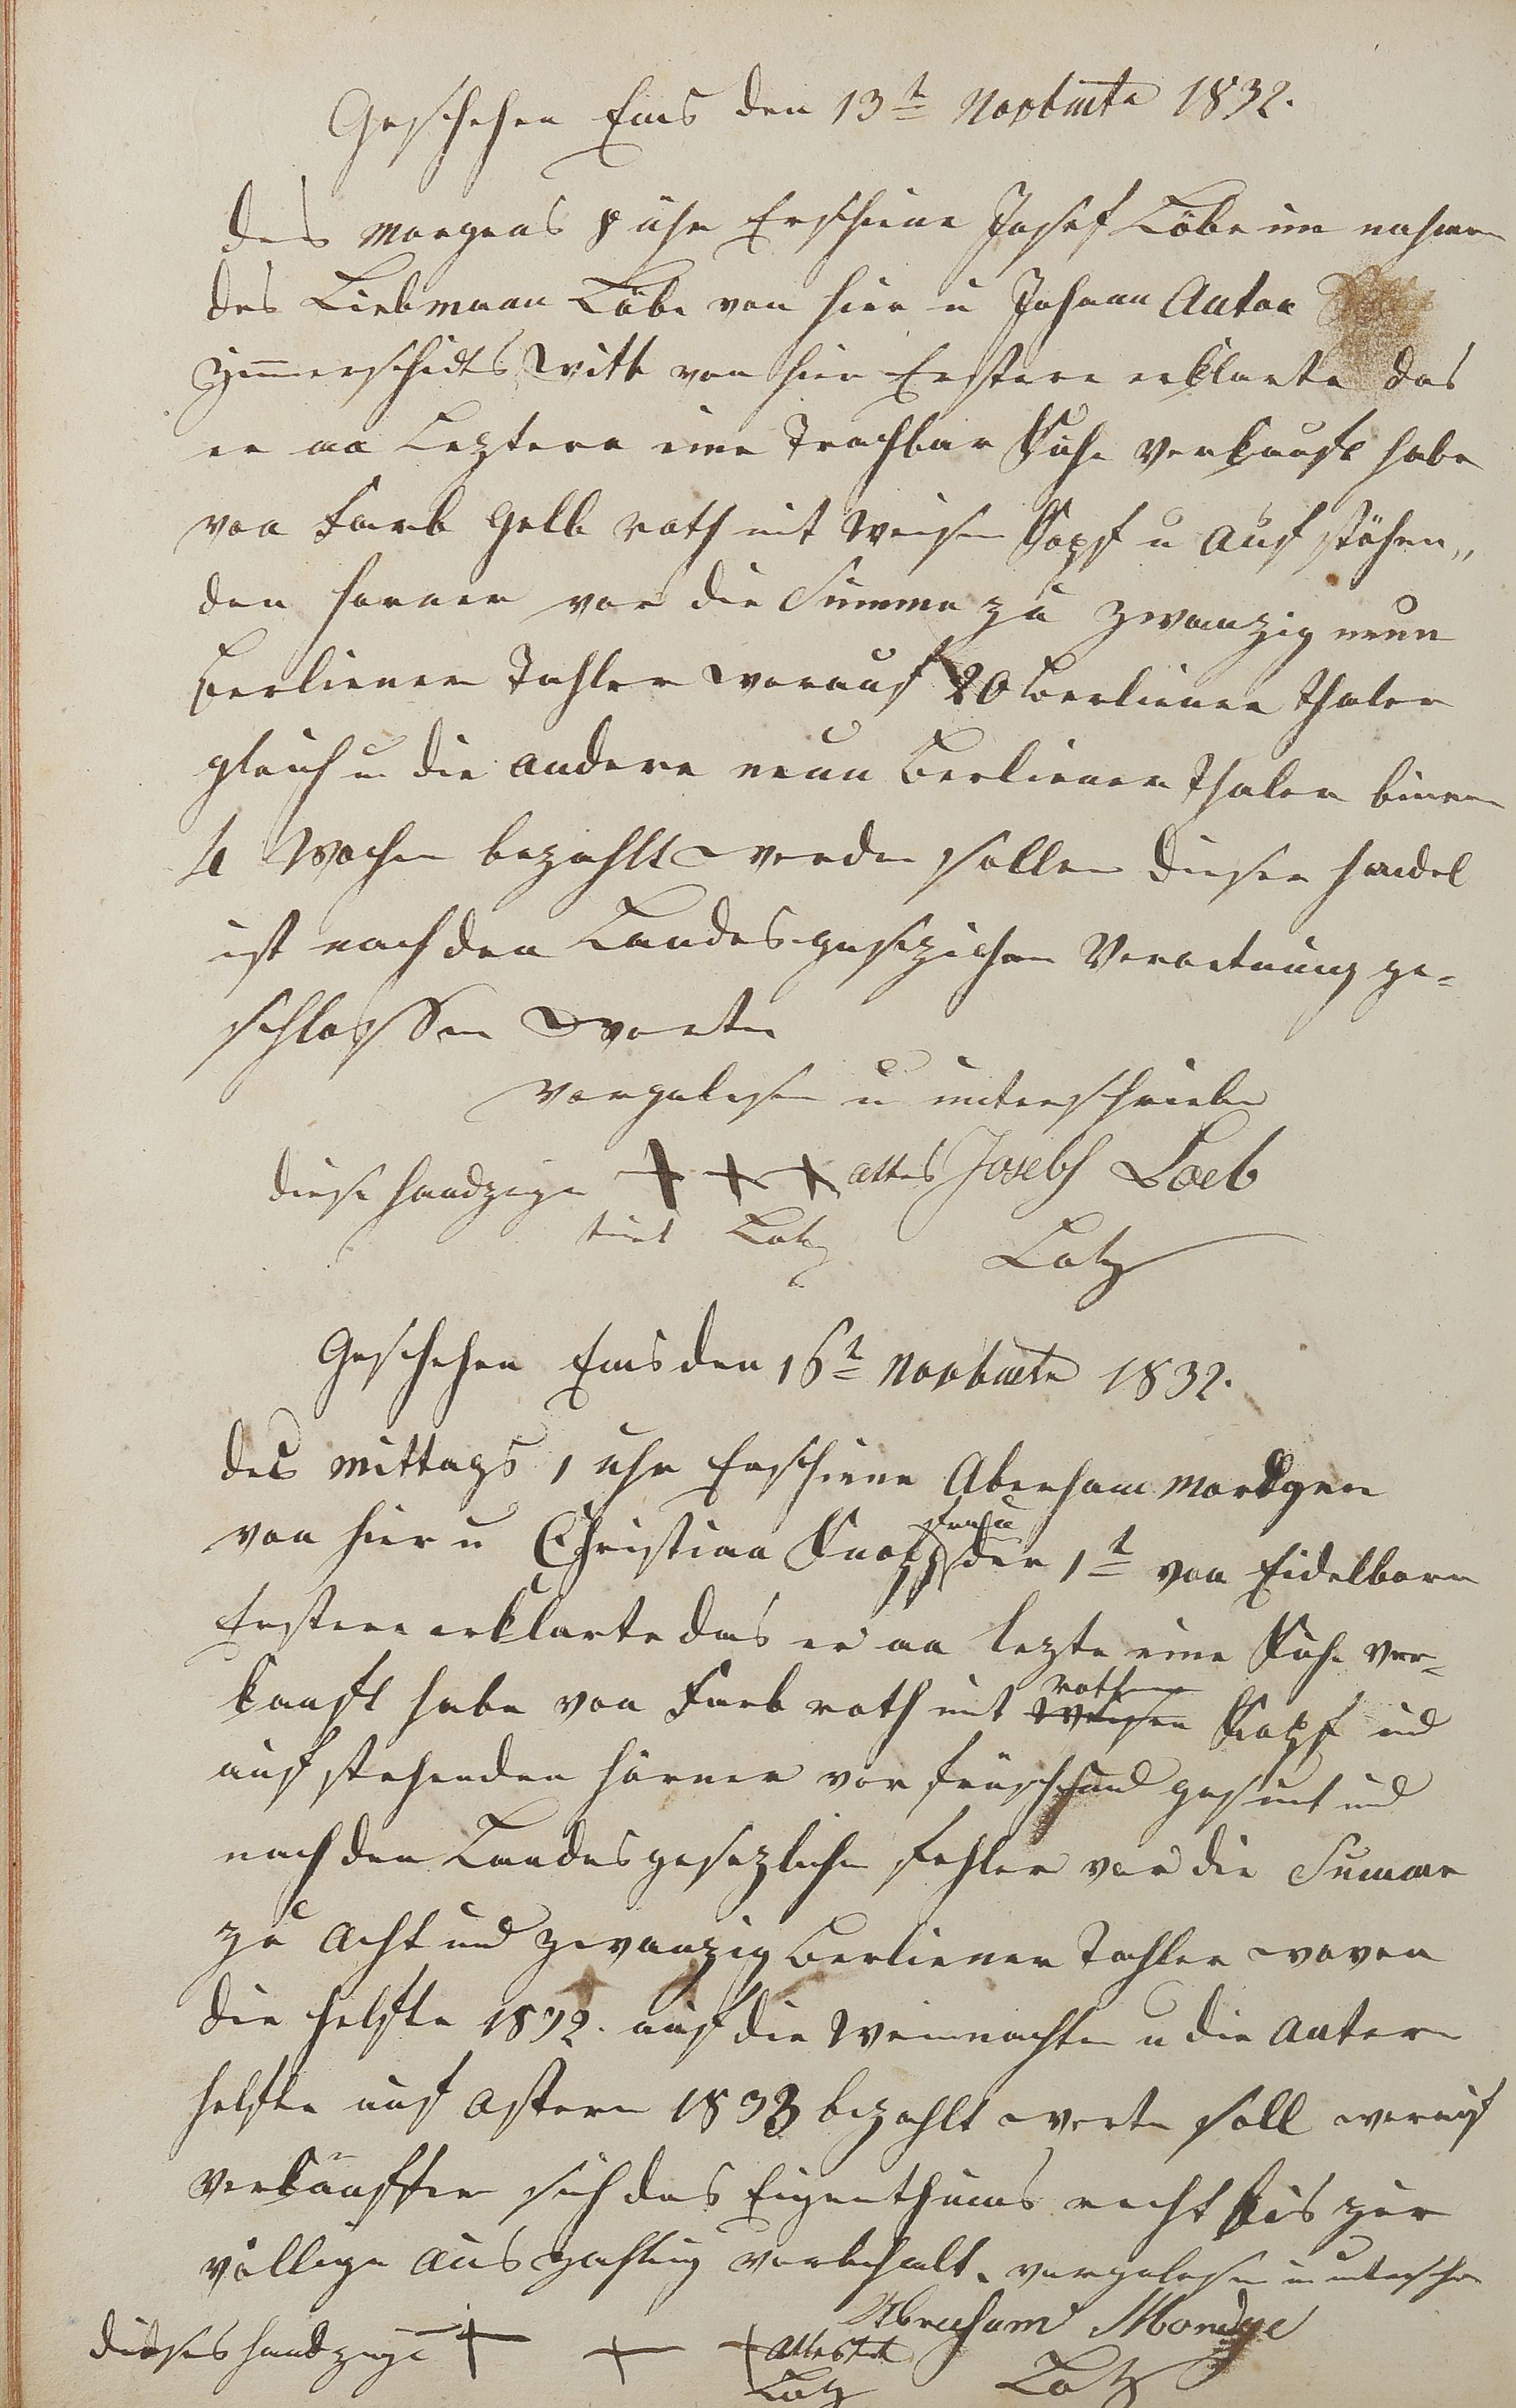 Geschehen Ems den 13t Novbmte 1832.
des Morgens 8 uhr Erschiene Josef Löbe im nahmen
des Liebmann Löbe von hier u Johann Anton
Zimmerschidts Witt von hier Erstere erklarte das
er an Leztere eine Trachbar Kuhe verkauft habe
von Farb gelb roth mit Weisen Kopf u auf stöhen„
den horner vor die Summa zu zwanzig neun
berliener Tahler worauf 20 berliener thaler
gleich u die andere neun berliener thaler binen
4 Wochen bezahlt werden sollen dieser handel
ist nach den Landesgesezichen Verortnung ge-
schlossen worten
Vorgelesen u unterschrieben
diese handzeige + + + attes Josebh Loeb
tirt Lotz Lotz
Geschehen Ems den 16t Novbmte 1832.
des mittags 1 uhr Erschiene Abenham Mordgen
frau
von hier u Christian Knopp der 1t von Eidelborn
Erstere erklarte das er an lezte eine Kuhe ver-
rothen
kauft habe von Farb roth mit Weisen Kopf und
auf stehenden hörner vor frisch und gesunt und
nach den Landesgesezlichen fehler vor die Summe
zu Acht und zwanzig berliener Tahler wovon
die helfte 1832. auf die Weinnachten u die antere
helfte auf Ostern 1833 bezahlt werten soll worauf
Verkäuffer sich das Eigenthums recht bis zur
völligen aus zahlung vorbehalt. vorgelesen u unterschr
Abraham Mordge
dieses handzeige + + + Attestirt
Lotz Lotz